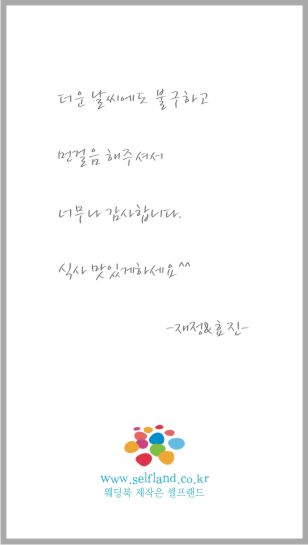 더운 날씨에도 불구하고
먼걸음 해주셔서
너무나 감사합니다.
식사 맛있게하세요^^
-재정&효진-
www.selfland.co.kr
웨딩북 제작은 셀프랜드